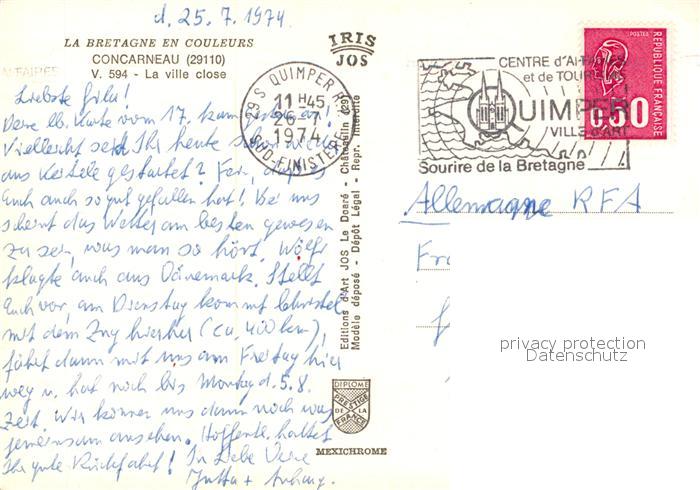 d. 25. 7. 1974.
LA BRETAGNE EN COULEURS
CONCARNEAU (29110)
V. 594 - La ville close
IRIS
JOS
Liebste Gila!
Eure lb. Karte vom 17. kam
Vielleicht seid Ihr heute
aus gestartet? Fein, daß es
Euch auch so gut gefallen hat! Bei uns
scheint das Wetter am besten gewesen
zu sein, was man so hört. Wolfs
klagte auch aus Dänemark. Stellt
Euch vor, am Dienstag kommt Christel
mit dem Zug hierher (ca. 400 km),
fährt dann mit uns am Freitag hier
weg u. hat noch bis Montag d. 5.8.
Zeit. Wir können uns dann noch was
gemeinsam ansehen. Hoffentl. hattet
Ihr gute Rückfahrt! In Liebe Eure
Jutta + Anhang.
Editions d'Art JOS Le Doaré - Châteaulin (29)
Modèle déposé - Dépôt Légal - Repr. Interdite
DIPLOME
PRESTIGE
DE LA
FRANCE
MEXICHROME
29 S QUIMPER
11 H45
26-7
1974
SUD-FINISTERE
CENTRE d'
et de
QUIMPER
VILLE d'ART
Sourire de la Bretagne
POSTES
REPUBLIQUE FRANÇAISE
0,50
Allemagne RFA
Fr
privacy protection
Datenschutz